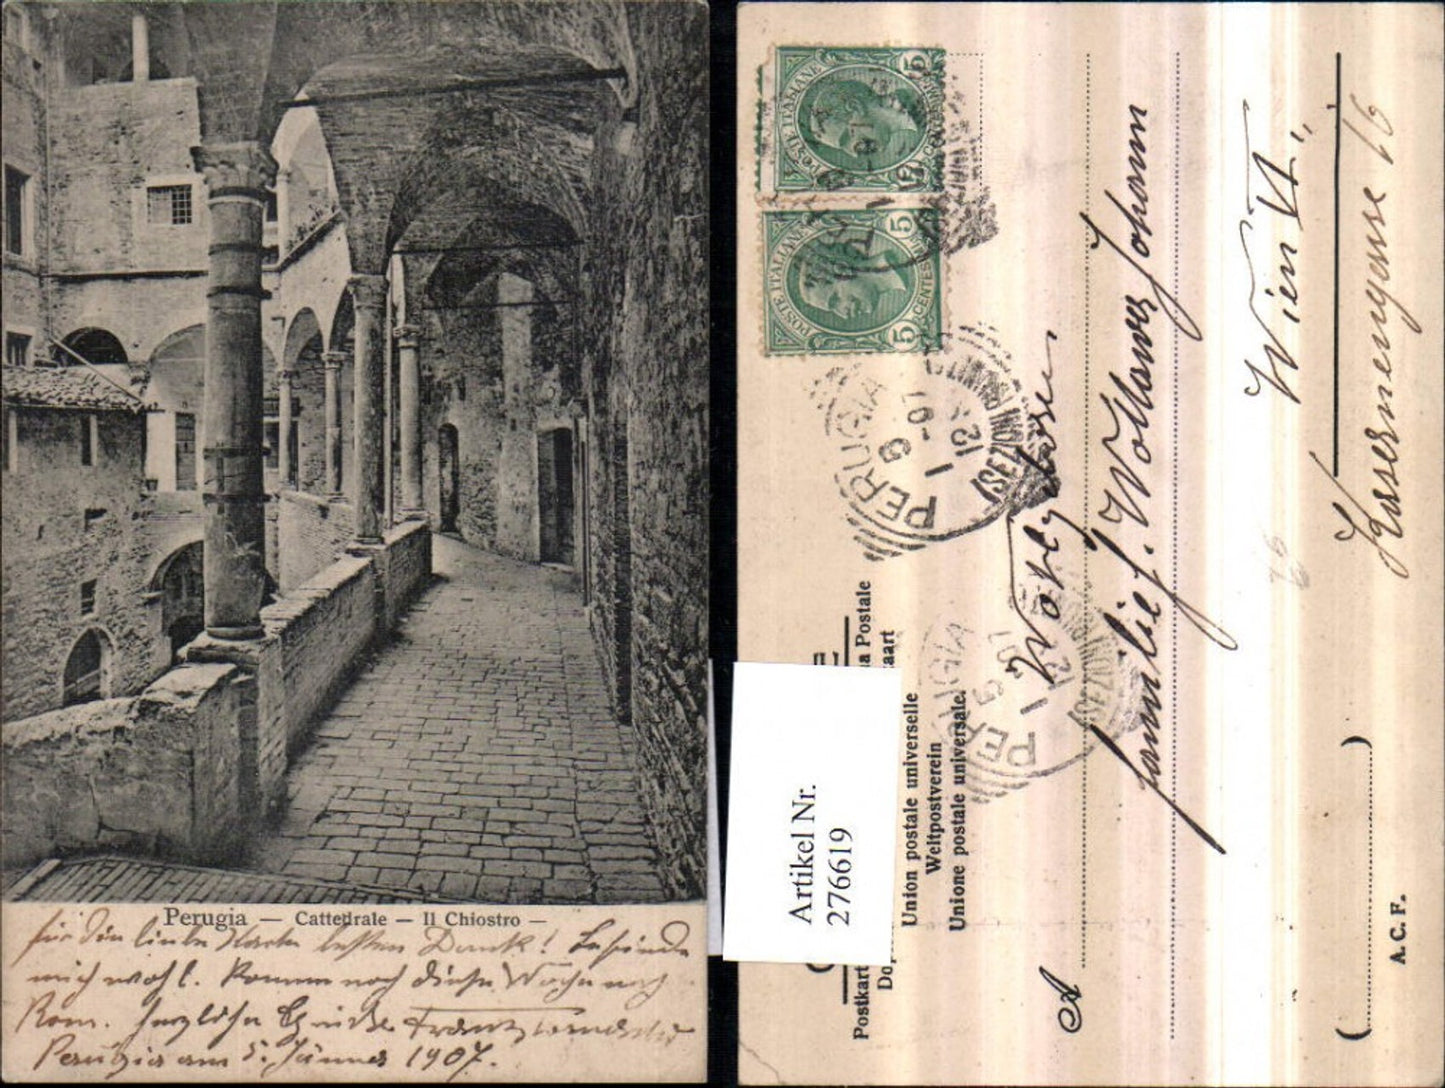 Perugia — Cattedrale — Il Chiostro —
für die liebe Karte besten Dank! Befinde
mich wohl. Komme noch diese Woche nach
Rom. Herzliche Grüße Franz
Perugia am 5. Jänner 1907.
POSTE ITALIANE
CENTESIMI
5
5
POSTE ITALIANE
CENTESIMI
5
5
PERUGIA
9
1 -07
12
PERUGIA
1
Postale
Union postale universelle
Weltpostverein
Unione postale universale.
Artikel Nr.
276619
A
Familie J. Johann
Wien VI.
Kasernengasse 16
( )
A. C. F.